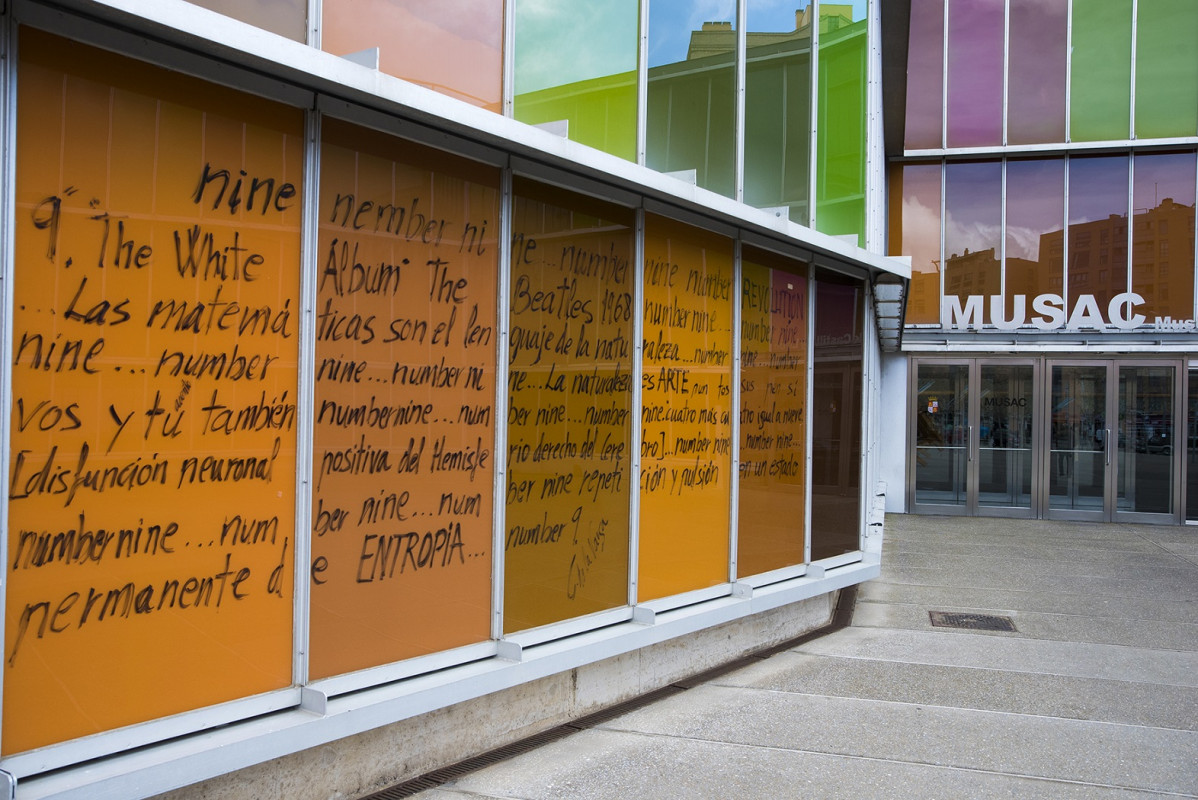 nine nember ni ne...number nine number REVOLUTION
9". "The White Álbum" The Beatles 1968 number nine... number nine...
...Las matemá ticas son el len guaje de la natu raleza...number nine...number
nine...number nine...number ni ne...La naturaleza es ARTE sus pen si
vos y tú también numbernine...num ber nine...number nine.cuatro más cua tro igual a nueve
[disfunción neuronal positiva del Hemisfe rio derecho del Cere bro]...number nine ...number nine...
numbernine...num ber nine...num ber nine repeti ción y pulsión en un estado
permanente d e ENTROPÍA... number 9
MUSAC Mus
MUSAC